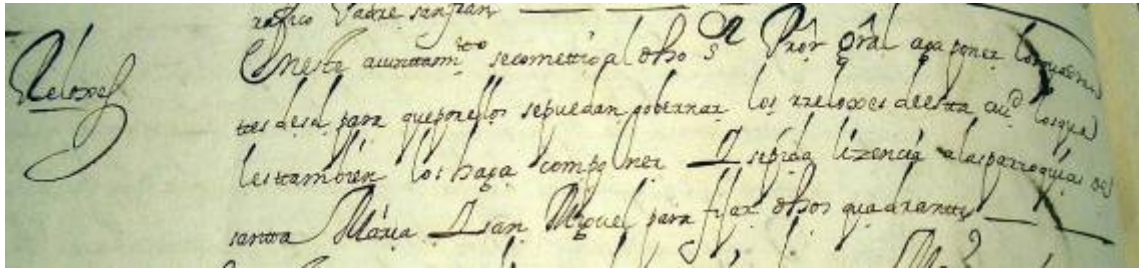 Padre san Juan
Reloxes
En este aiunttamtto se comettio al dho Sr Pror Gral aga poner los quadran
ttes de sol para que por ellos se puedan gobernar los rreloxes de esta ciud los qua
les ttambien los haga componer Y se pida lizencia a las parroquias de
santta Maria Y san Miguel para fijar dhos quadrantes